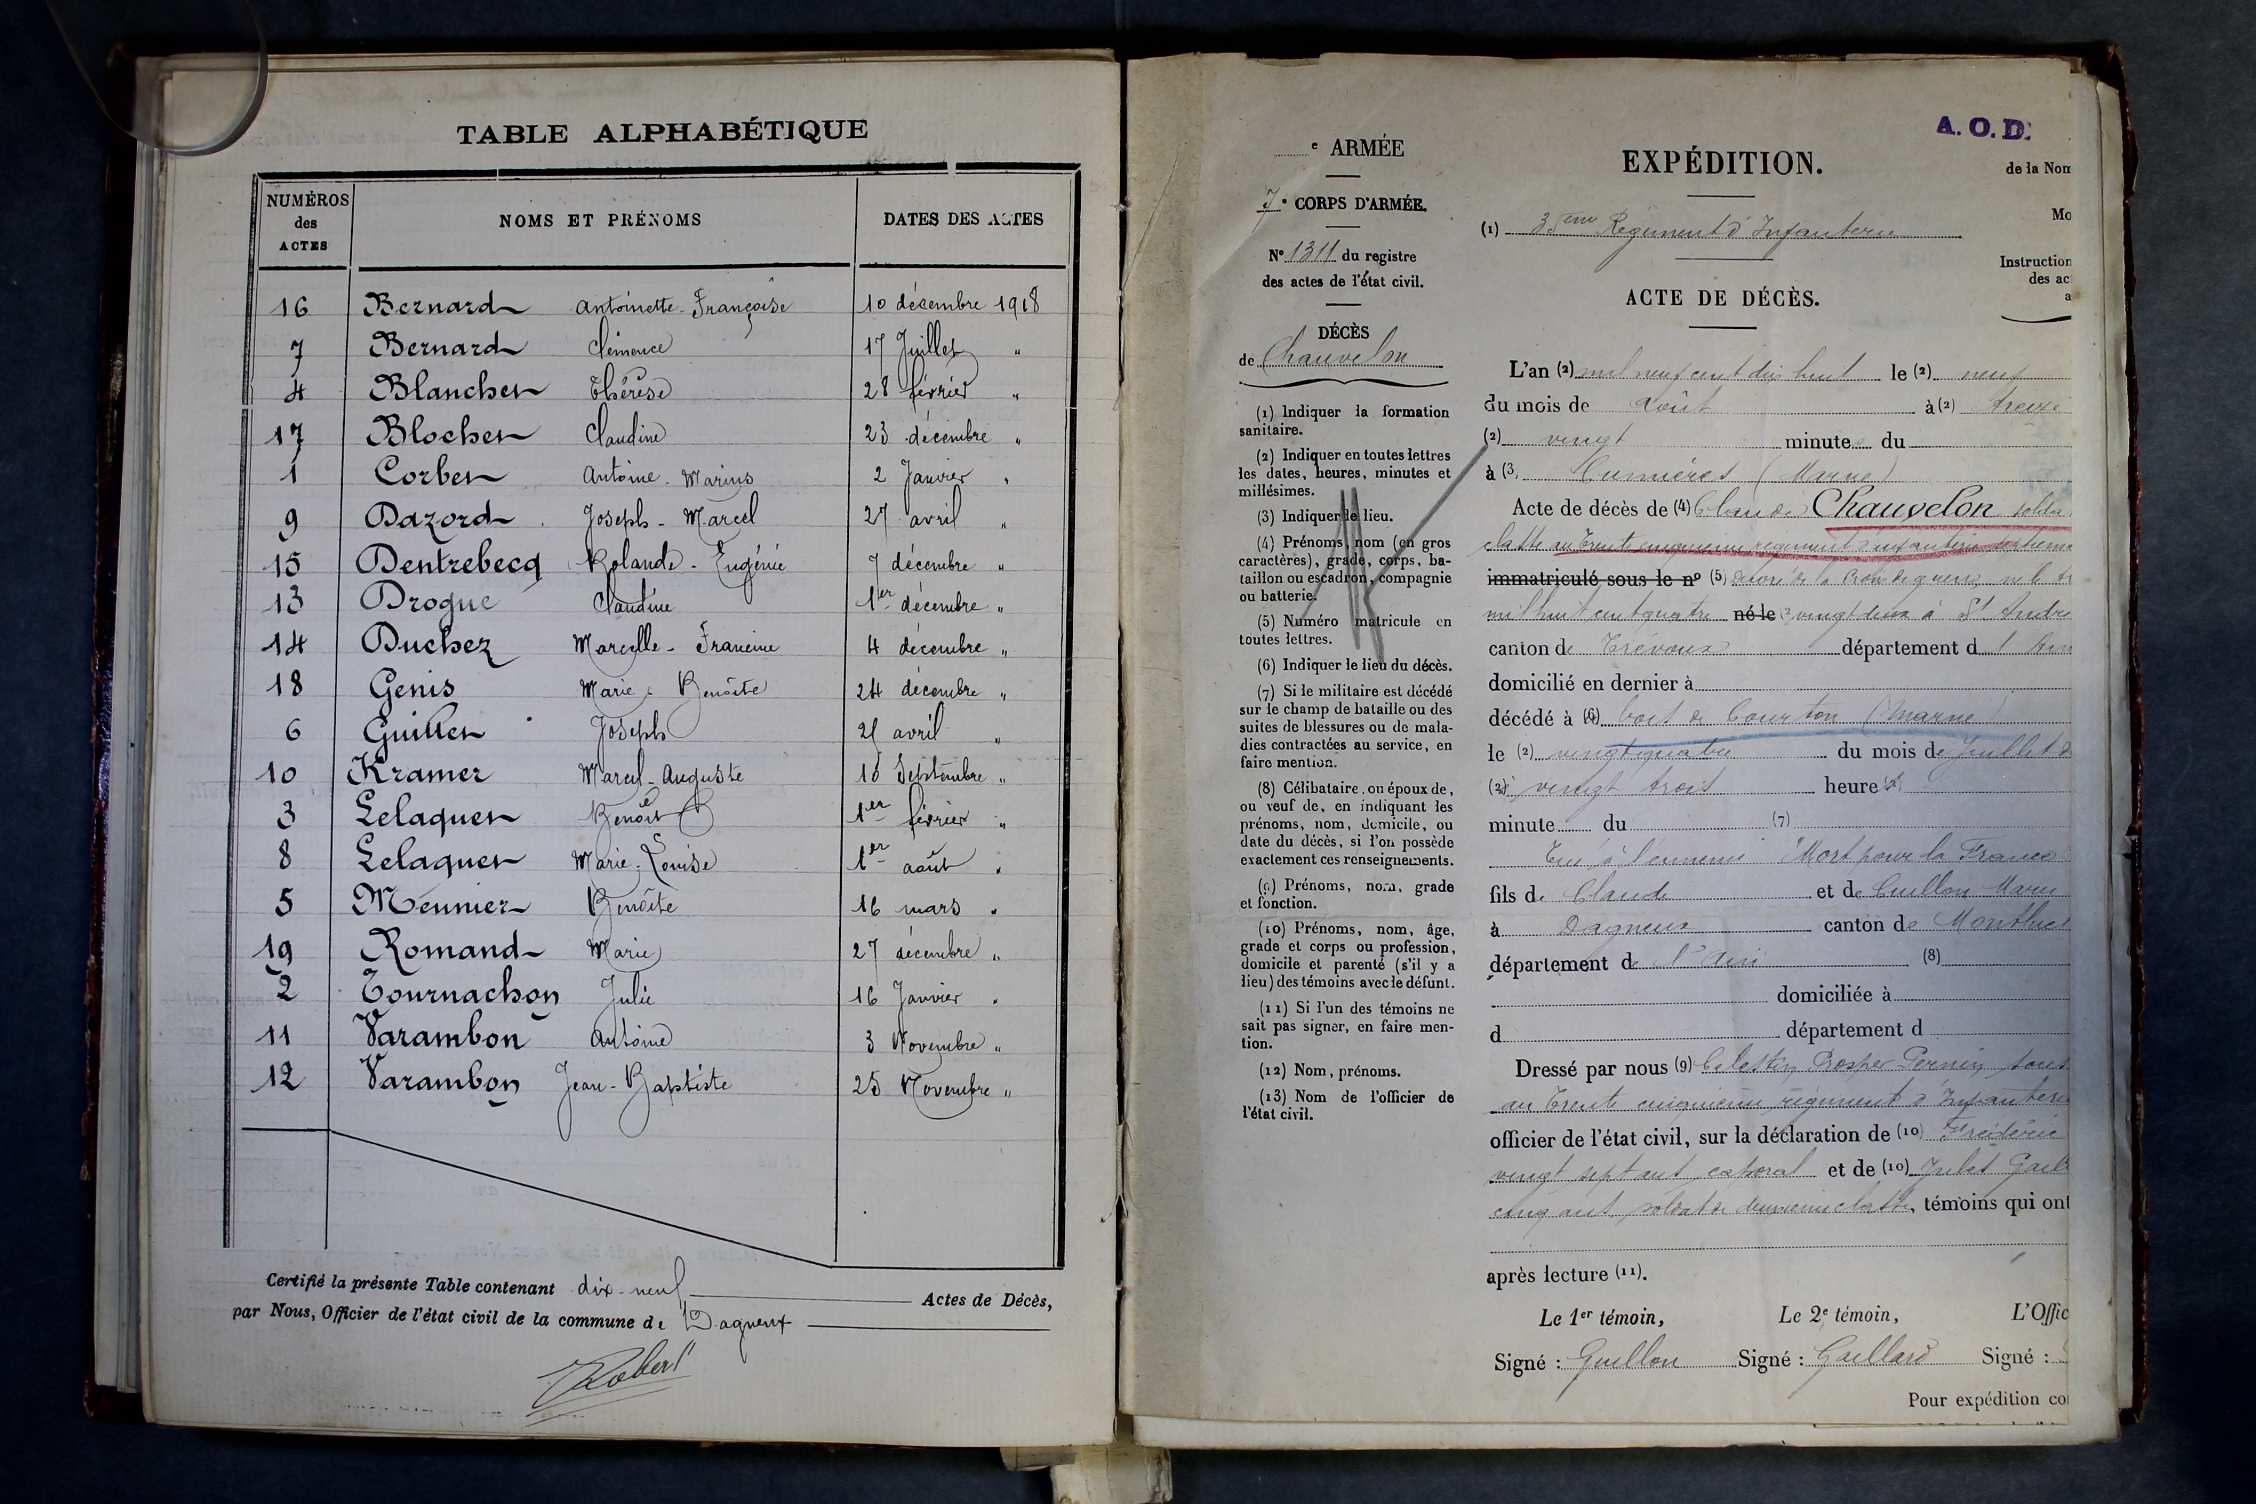 TABLE ALPHABÉTIQUE
NUMÉROS des ACTES NOMS ET PRÉNOMS DATES DES ACTES
16 Bernard Antoinette-Françoise 10 décembre 1918
7 Bernard Clémence 17 Juillet "
4 Blanchet Thérèse 28 février "
17 Blochet Claudine 23 décembre "
1 Corbet Antoine-Marius 2 Janvier "
9 Dazord Joseph-Marcel 27 avril "
15 Dentrebecq Rolande-Eugénie 7 décembre "
13 Drogue Claudine 1er décembre "
14 Duchez Marcelle-Francine 4 décembre "
18 Genis Marie-Benoîte 24 décembre "
6 Guillet Joseph 21 avril "
10 Kramer Marcel-Auguste 10 Septembre "
3 Lelaquet Benoît 1er février "
8 Lelaquet Marie-Louise 1er août "
5 Meunier Benoîte 16 mars "
19 Romand Marie 27 décembre "
2 Tournachon Julie 16 Janvier "
11 Varambon Antoine 3 Novembre "
12 Varambon Jean-Baptiste 25 Novembre "
Certifié la présente Table contenant dix-neuf Actes de Décès,
par Nous, Officier de l'état civil de la commune de Dagneux
Robert
e ARMÉE
7e CORPS D'ARMÉE.
No 1311 du registre
des actes de l'état civil.
DÉCÈS
de Chauvelon
(1) Indiquer la formation
sanitaire.
(2) Indiquer en toutes lettres
les dates, heures, minutes et
millésimes.
(3) Indiquer le lieu.
(4) Prénoms, nom (en gros
caractères), grade, corps, ba-
taillon ou escadron, compagnie
ou batterie.
(5) Numéro matricule en
toutes lettres.
(6) Indiquer le lieu du décès.
(7) Si le militaire est décédé
sur le champ de bataille ou des
suites de blessures ou de mala-
dies contractées au service, en
faire mention.
(8) Célibataire, ou époux de,
ou veuf de, en indiquant les
prénoms, nom, domicile, ou
date du décès, si l'on possède
exactement ces renseignements.
(9) Prénoms, nom, grade
et fonction.
(10) Prénoms, nom, âge,
grade et corps ou profession,
domicile et parenté (s'il y a
lieu) des témoins avec le défunt.
(11) Si l'un des témoins ne
sait pas signer, en faire men-
tion.
(12) Nom, prénoms.
(13) Nom de l'officier de
l'état civil.
A. O. D.
EXPÉDITION.
de la Nom
(1) 35eme Régiment d'Infanterie
Mo
Instruction
des ac
a
ACTE DE DÉCÈS.
L'an (2) mil neuf cent dix huit le (2) neuf
du mois de Août à (2) treize
(2) vingt minute du
à (3) Cumières (Marne)
Acte de décès de (4) Claude Chauvelon solda
classe au trente cinquième régiment d'infanterie
immatriculé sous le no (5) Décoré de la Croix de guerre né le
mil huit cent quatre né le (2) vingt deux à St André
canton de Trévoux département d l'Ain
domicilié en dernier à
décédé à (6) bois de Courton (Marne)
le (2) vingt quatre du mois de Juillet
(2) vingt trois heure (2)
minute du (7)
Tué à l'ennemi "Mort pour la France"
fils de Claude et de Cuillon Marie
à Dagneux canton de Montluel
département de l'Ain (8)
domiciliée à
d département d
Dressé par nous (9) Célestin Prosper Pernin, sous
au trente cinquième régiment d'Infanterie
officier de l'état civil, sur la déclaration de (10) Frédéric
vingt sept ans, caporal et de (10) Jules Gaill
cinq ans, soldat de deuxième classe, témoins qui ont
après lecture (11).
Le 1er témoin, Le 2e témoin, L'Offic
Signé : Guillon Signé : Gaillard Signé :
Pour expédition co